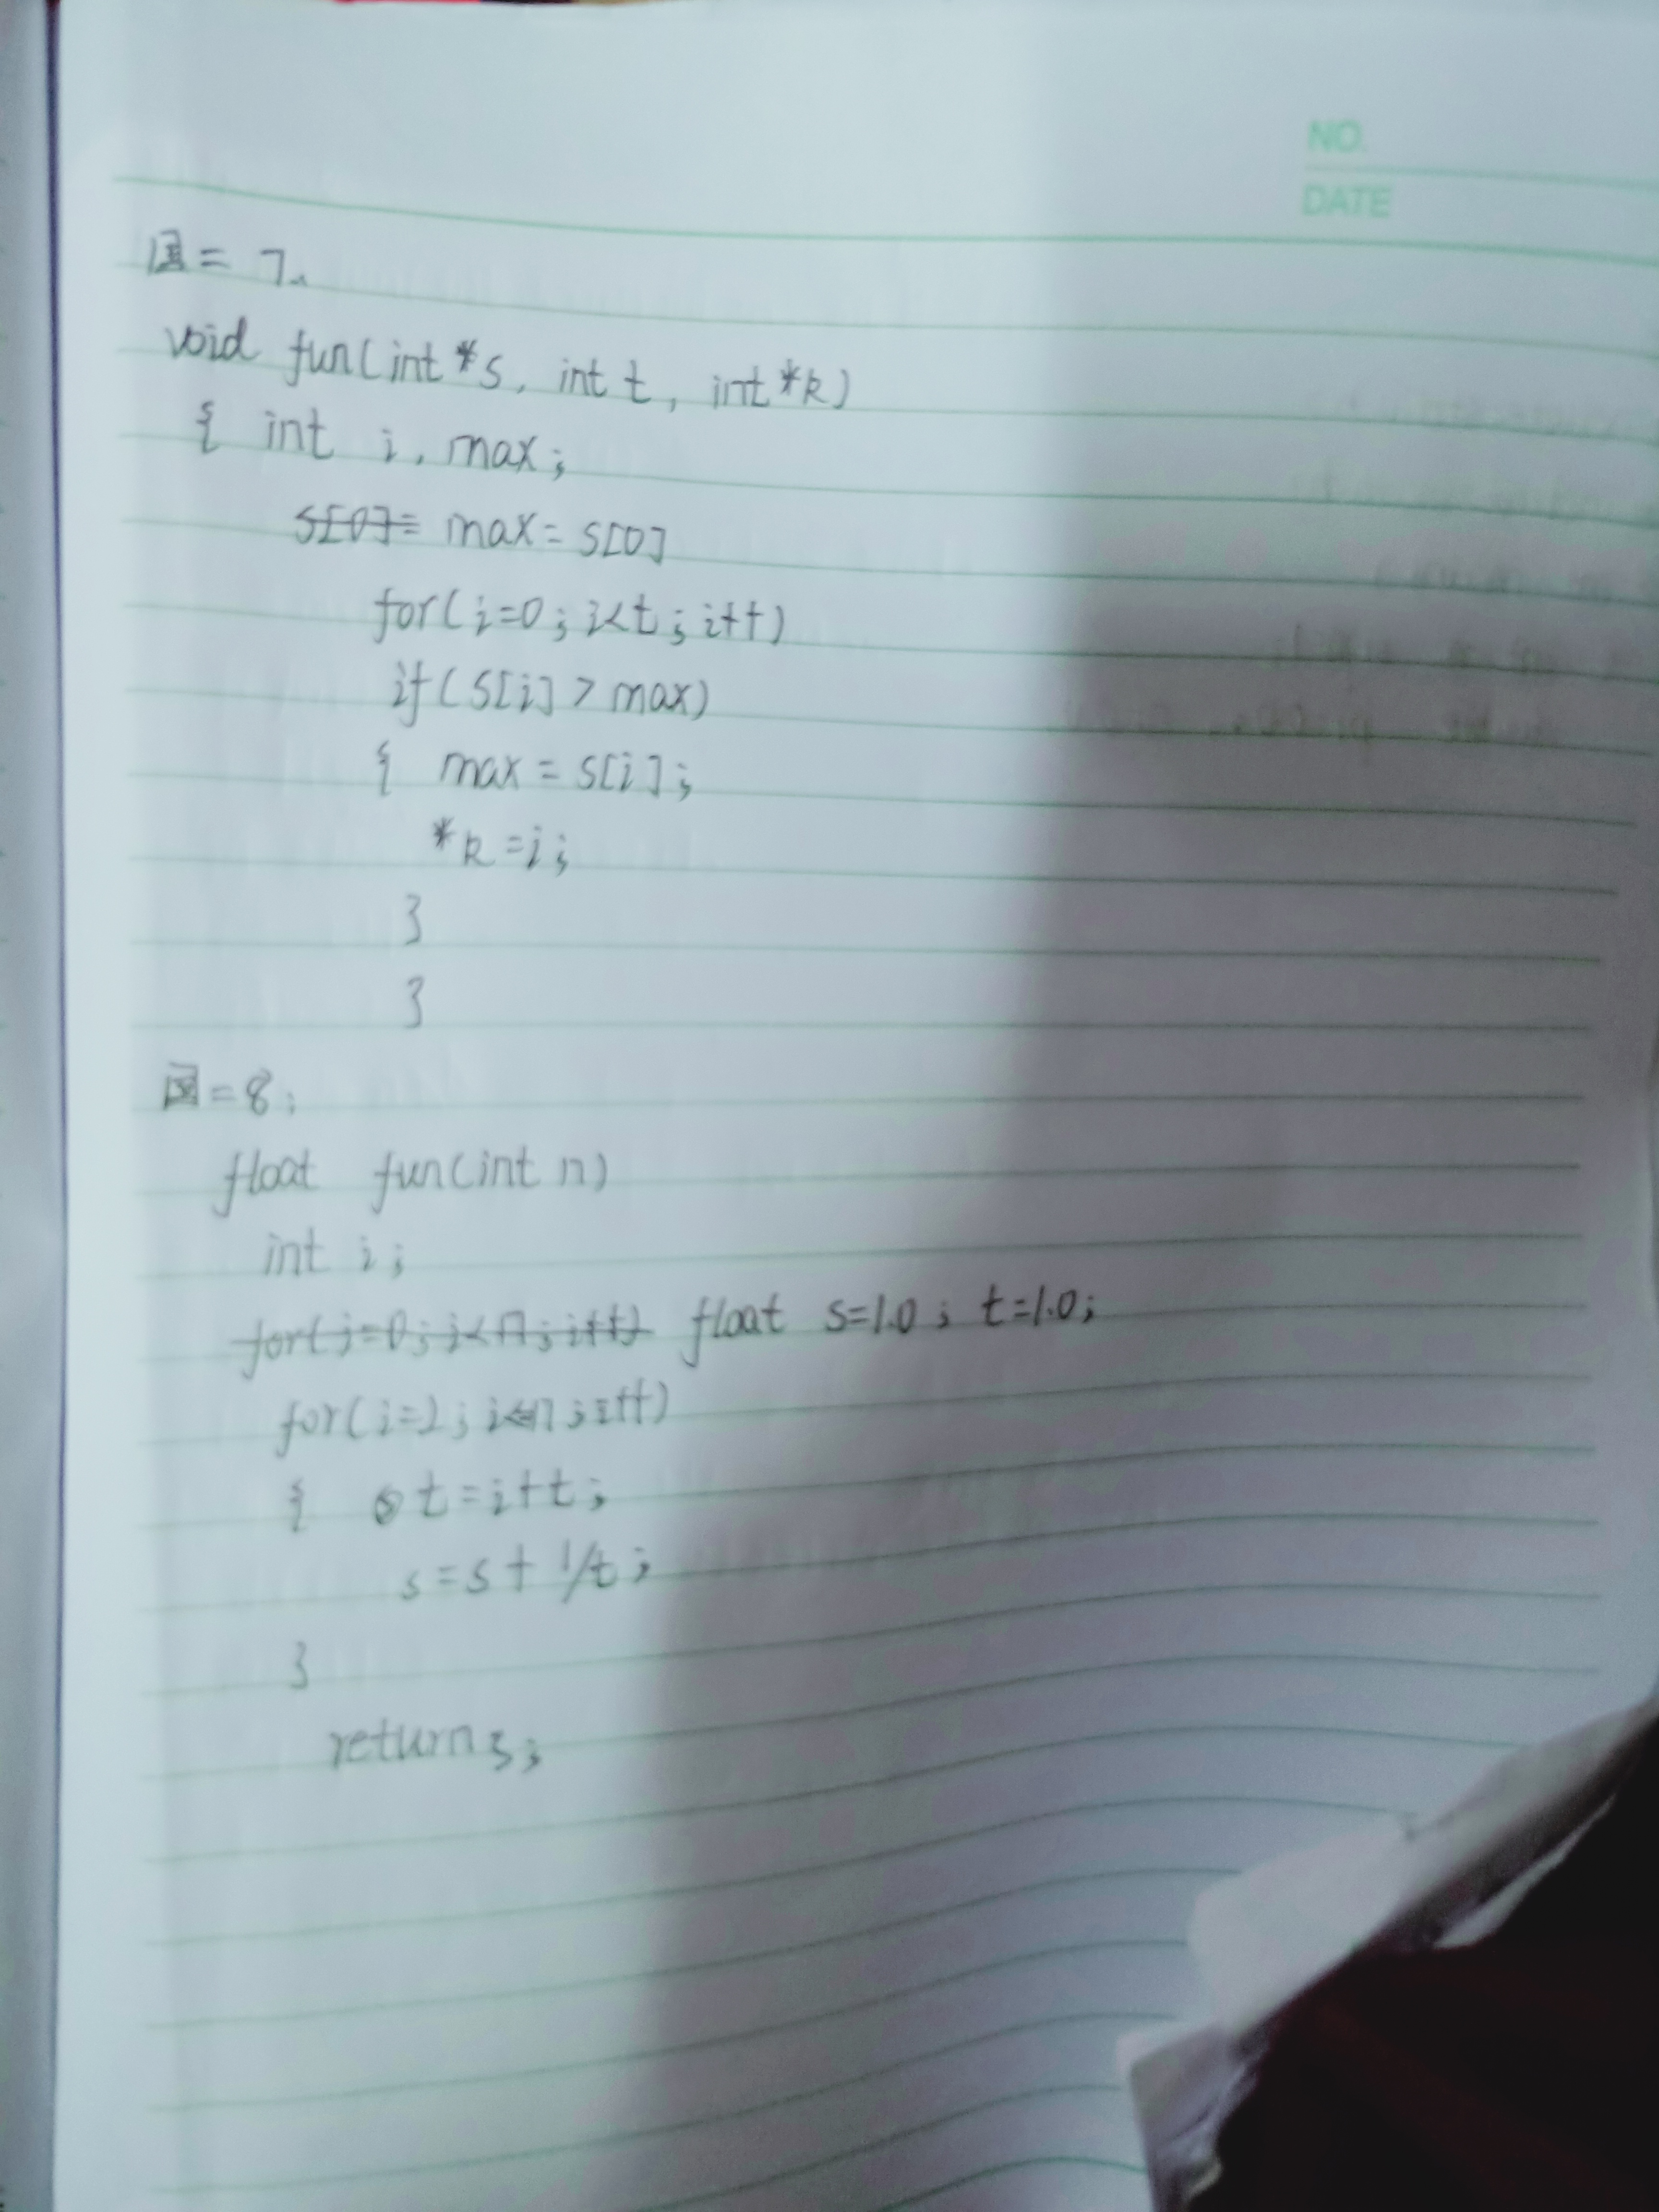 NO.
DATE
国=7、
void fun(int *s, int t, int *k)
{ int i, max;
s[0]= max = s[0]
for(i=0; i<t; i++)
if(s[i] > max)
{ max = s[i];
*k = i;
}
}
国=8;
float fun(int n)
int i;
for(i=0; i<n; i++) float s=1.0; t=1.0;
for(i=2; i<=n; i++)
{ t=i+t;
s=s+1/t;
}
return s;